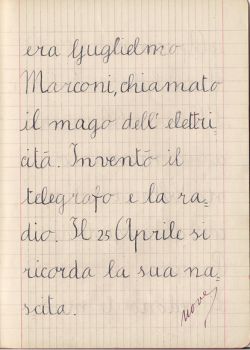 era Guglielmo
Marconi, chiamato
il mago dell'elettri
cità. Inventò il
telegrafo e la ra-
dio. Il 25 Aprile si
ricorda la sua na-
scita.
nove